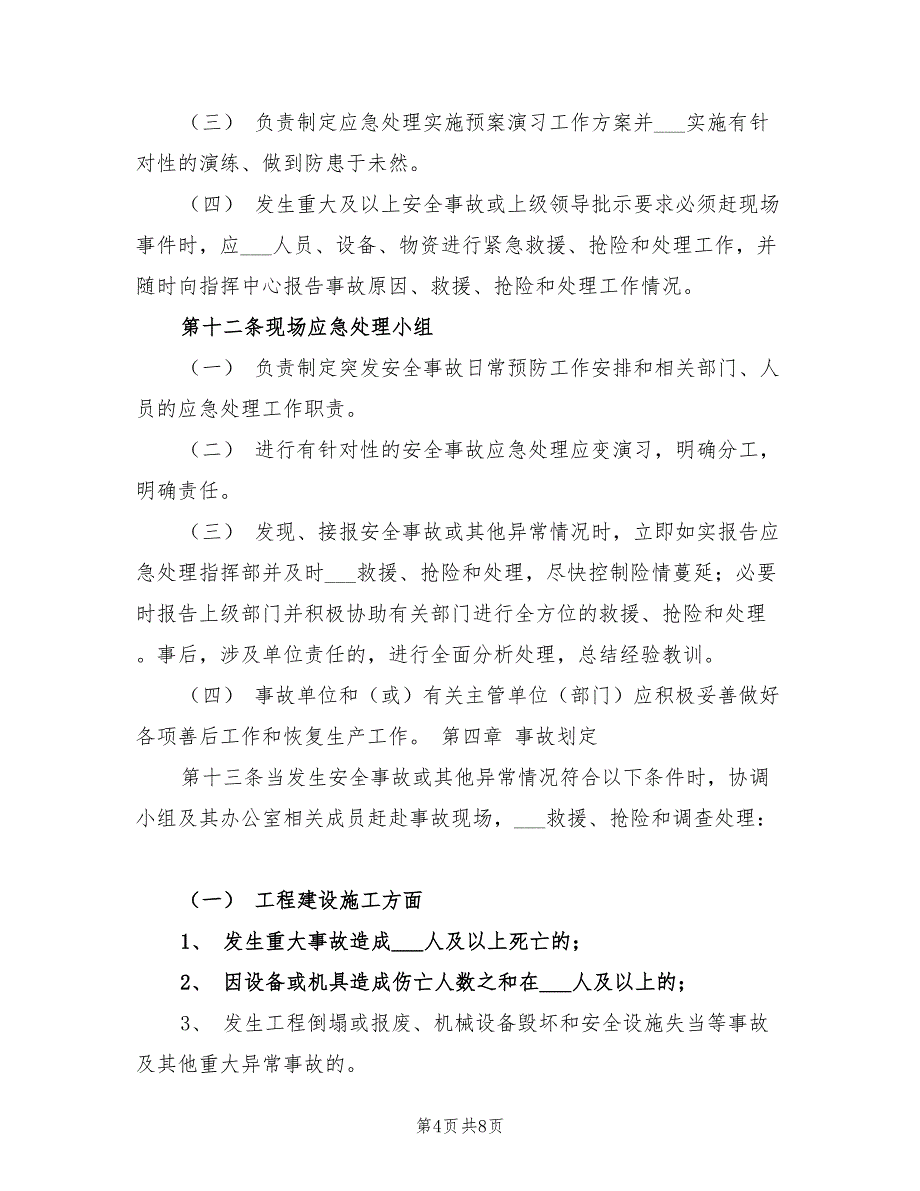 （三） 负责制定应急处理实施预案演习工作方案并___实施有针
对性的演练、做到防患于未然。
（四） 发生重大及以上安全事故或上级领导批示要求必须赶现场
事件时，应___人员、设备、物资进行紧急救援、抢险和处理工作，并
随时向指挥中心报告事故原因、救援、抢险和处理工作情况。
第十二条现场应急处理小组
（一） 负责制定突发安全事故日常预防工作安排和相关部门、人
员的应急处理工作职责。
（二） 进行有针对性的安全事故应急处理应变演习，明确分工，
明确责任。
（三） 发现、接报安全事故或其他异常情况时，立即如实报告应
急处理指挥部并及时___救援、抢险和处理，尽快控制险情蔓延；必要
时报告上级部门并积极协助有关部门进行全方位的救援、抢险和处理
。事后，涉及单位责任的，进行全面分析处理，总结经验教训。
（四） 事故单位和（或）有关主管单位（部门）应积极妥善做好
各项善后工作和恢复生产工作。 第四章 事故划定
第十三条当发生安全事故或其他异常情况符合以下条件时，协调
小组及其办公室相关成员赶赴事故现场，___救援、抢险和调查处理：
（一） 工程建设施工方面
1、 发生重大事故造成___人及以上死亡的；
2、 因设备或机具造成伤亡人数之和在___人及以上的；
3、 发生工程倒塌或报废、机械设备毁坏和安全设施失当等事故
及其他重大异常事故的。
第4页 共8页